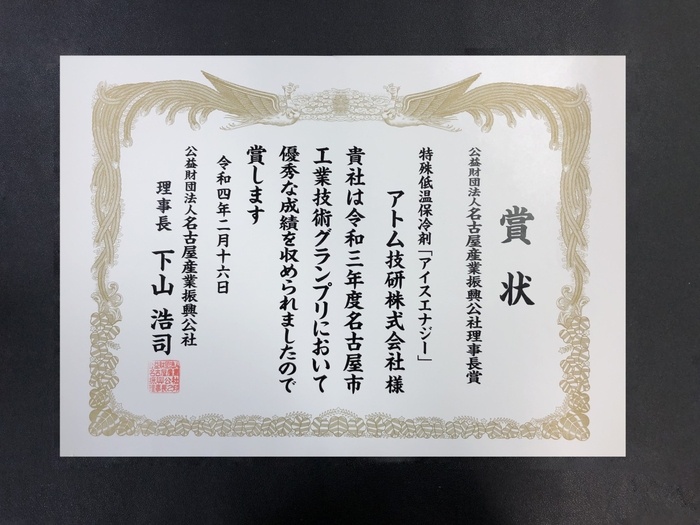 賞状
公益財団法人名古屋産業振興公社理事長賞
特殊低温保冷剤「アイスエナジー」
アトム技研株式会社 様
貴社は令和三年度名古屋市
工業技術グランプリにおいて
優秀な成績を収められましたので
賞します
令和四年二月十六日
公益財団法人名古屋産業振興公社
理事長 下山 浩司